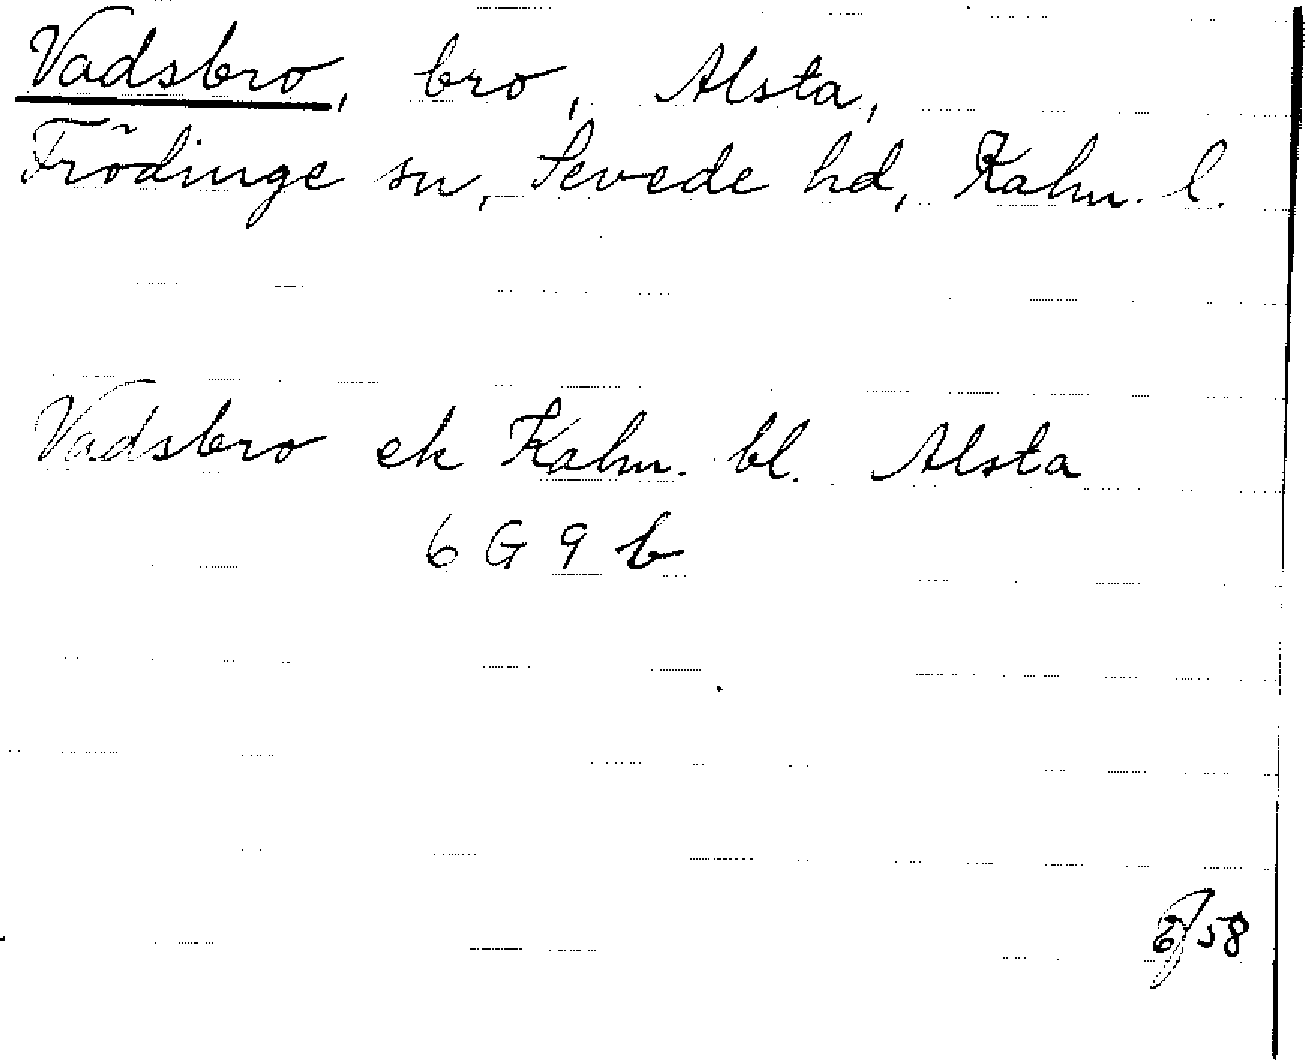 Vadsbro, bro, Alsta,
Frödinge sn, Sevede hd, Kalm. l.
Vadsbro ek Kalm. bl. Alsta
6 G 9 b